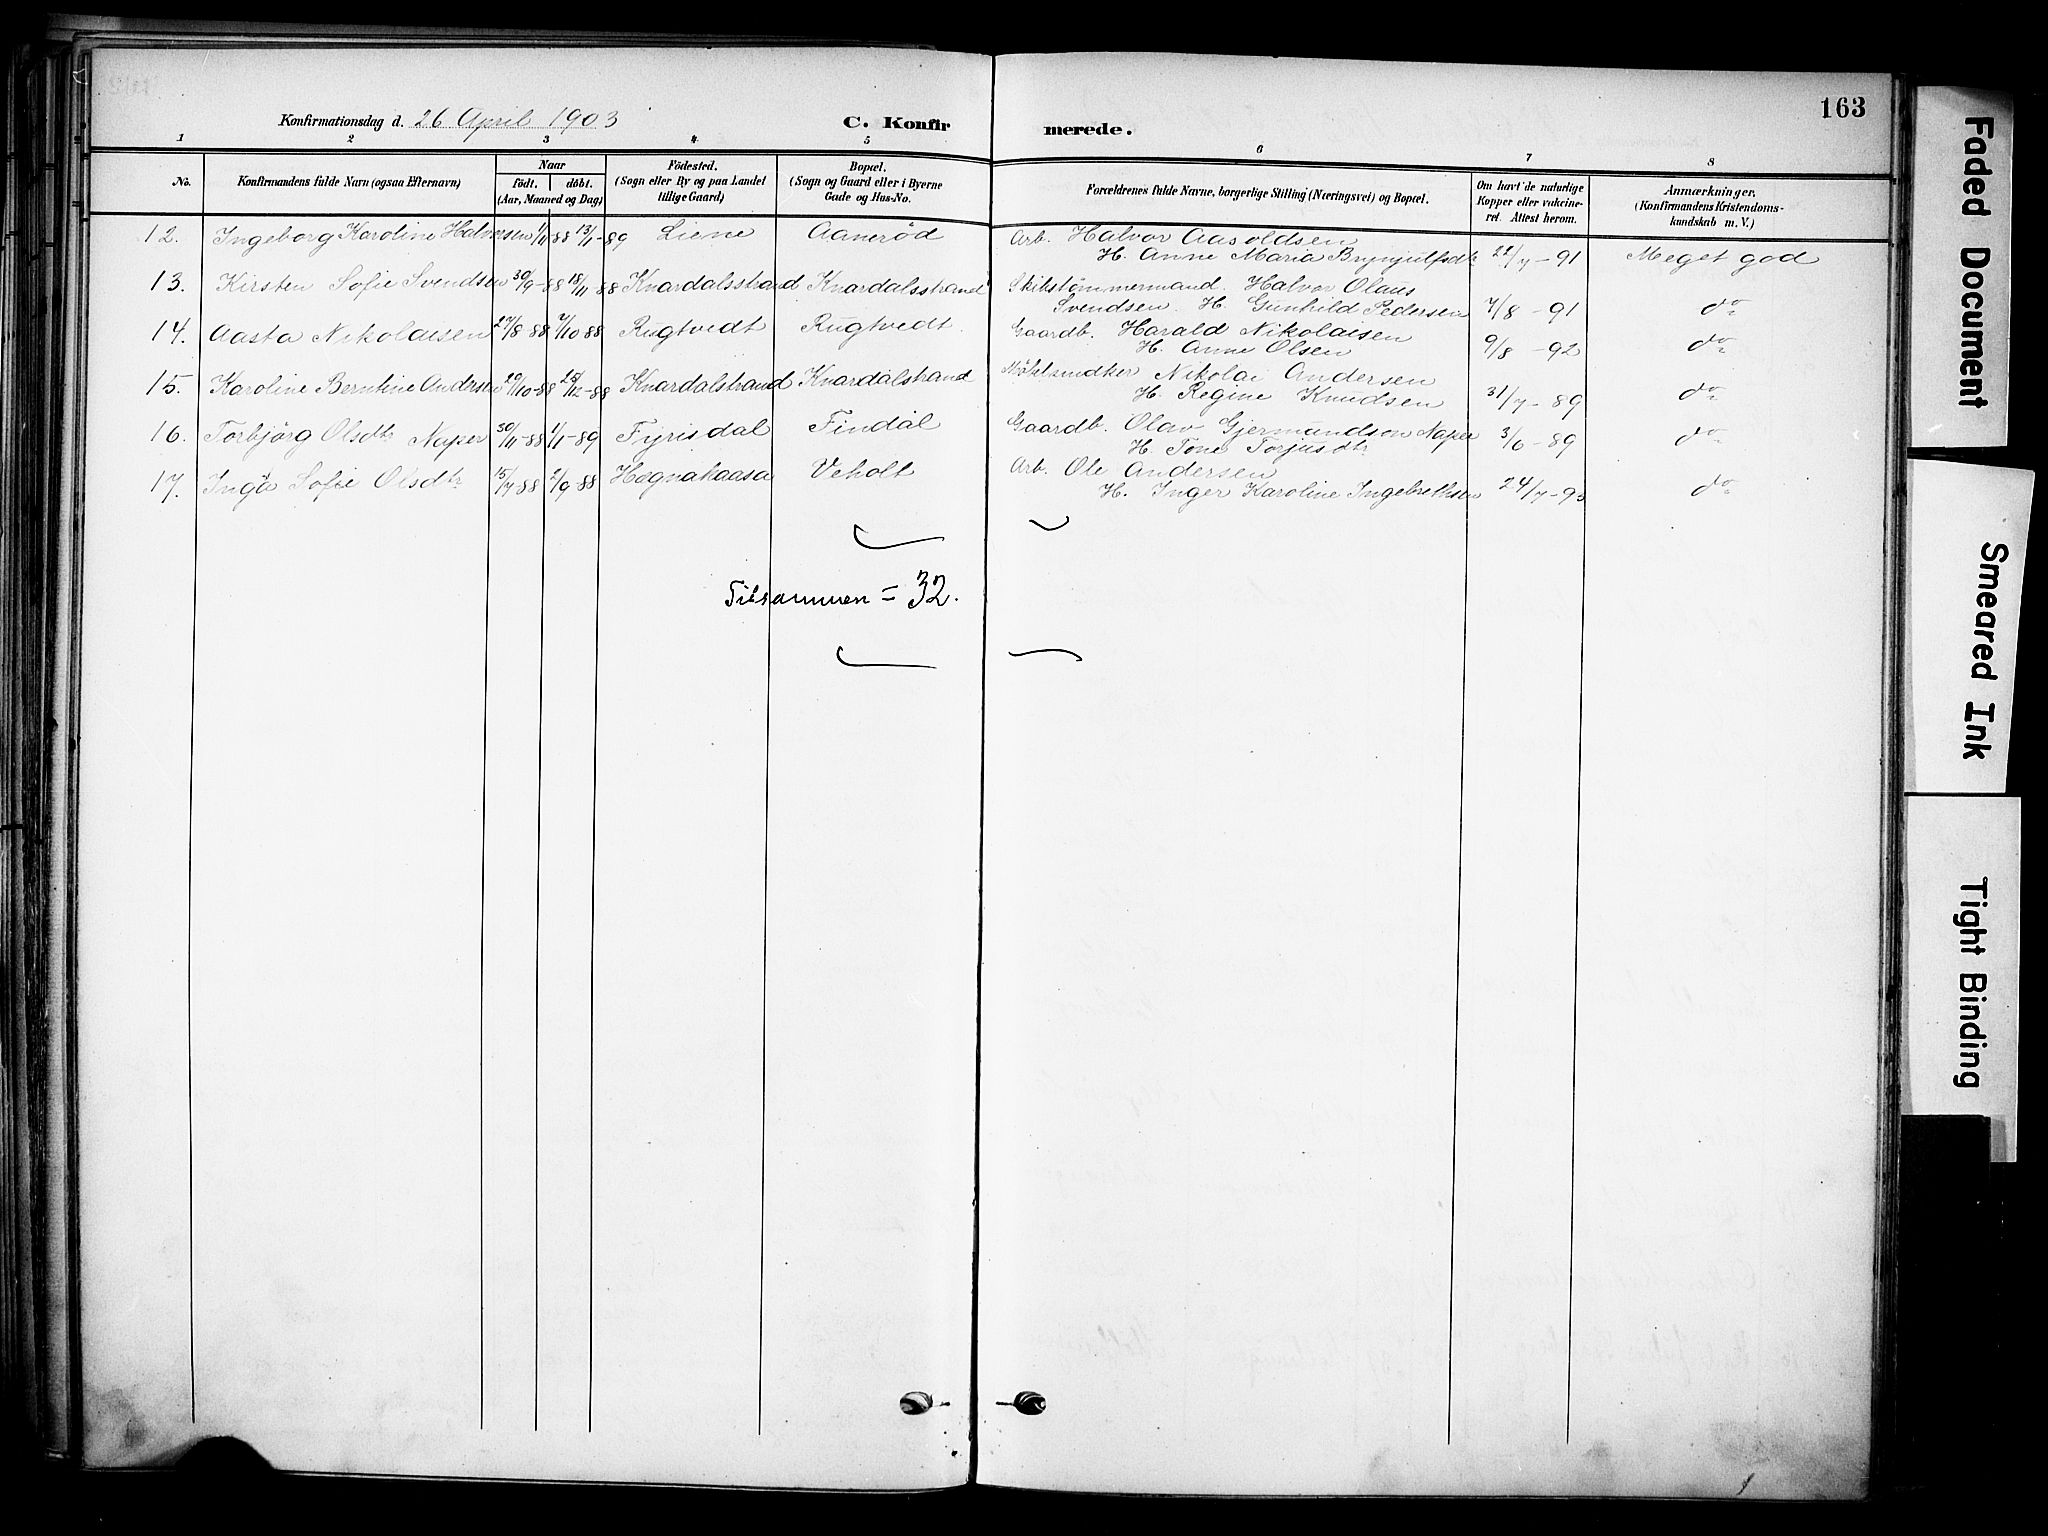 163
Konfirmationsdag d. 26 April 1903
C. Konfirmerede.
1 2 3 4 5 6 7 8
No.
Konfirmandens fulde Navn (ogsaa Efternavn)
Naar
født. døbt.
(Aar, Maaned og Dag)
Fødested.
(Sogn eller By og paa Landet
tillige Gaard)
Bopæl.
(Sogn og Gaard eller i Byerne
Gade og Hus-No.
Forældrenes fulde Navne, borgerlige Stilling (Næringsvei) og Bopæl.
Om havt de naturlige
Kopper eller vakcine-
ret. Attest herom.
Anmærkninger.
(Konfirmandens Kristendoms-
kundskab m. V.)
12. Ingeborg Karoline Halversen 1/11-88 13/1-89 Liene Aanerød Arb. Halvor Aasoldsen
H. Anne Maria Brynjulfsdtr 22/7-91 Meget god
13. Kirsten Sofie Svendsen 30/9-88 18/11-88 Knardalsstrand Knardalsstrand Skibstømmermand. Halvor Olaus
Svendsen. H. Gunhild Pedersen 7/8-91 do
14. Aasta Nikolaisen 27/8-88 7/10-88 Rugtvedt Rugtvedt. Gaardb. Harald Nikolaisen
H. Anne Olsen 9/8-92 do
15. Karoline Berntine Andersen 20/10-88 25/12-88 Knardalstrand Knardalstrand Nikolai Andersen
H. Regine Knudsen 31/7-89 do
16. Torbjörg Olsdtr Naper 30/11-88 1/1-89 Fyrisdal Findal Gaardb. Olav Gjermundson Naper
H. Tone Torjusdtr 3/6-89 do
17. Inga Sofie Olsdtr 15/7-88 2/9-88 Hægnakaasa Veholt Arb. Ole Andersen
H. Inger Karoline Ingebrethsen 24/7-93 do
Tilsammen = 32.
Faded Document
Smeared Ink
Tight Binding